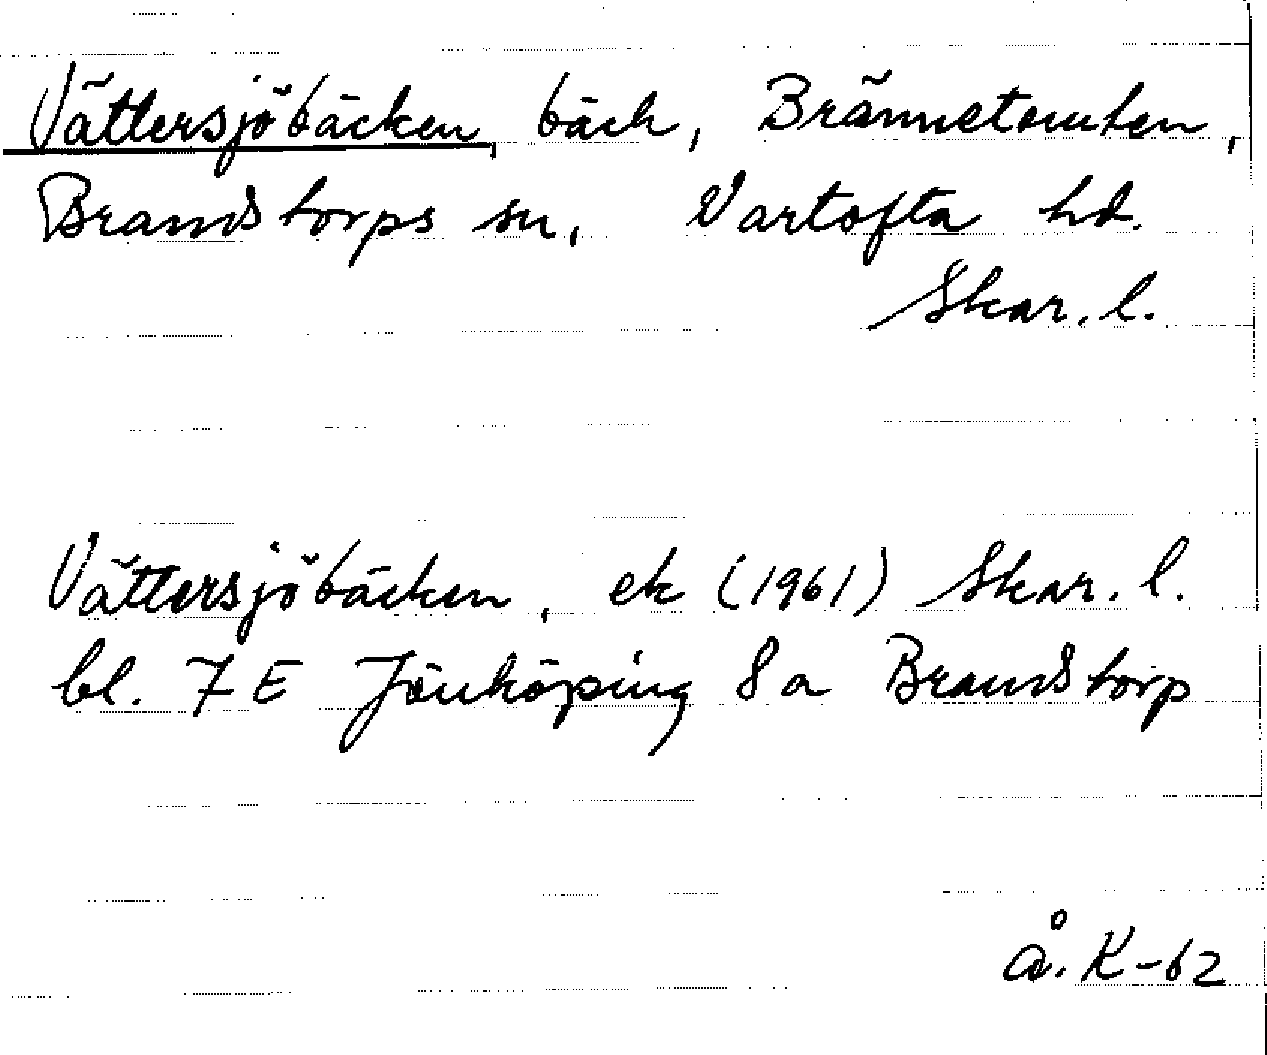 Vättersjöbäcken, bäck, Brännetomten,
Brandstorps sn, Vartofta hd.
Skar. l.
Vättersjöbäcken, ek (1961) Skar. l.
bl. 7 E Jönköping 8 a Brandstorp
Å. K-62